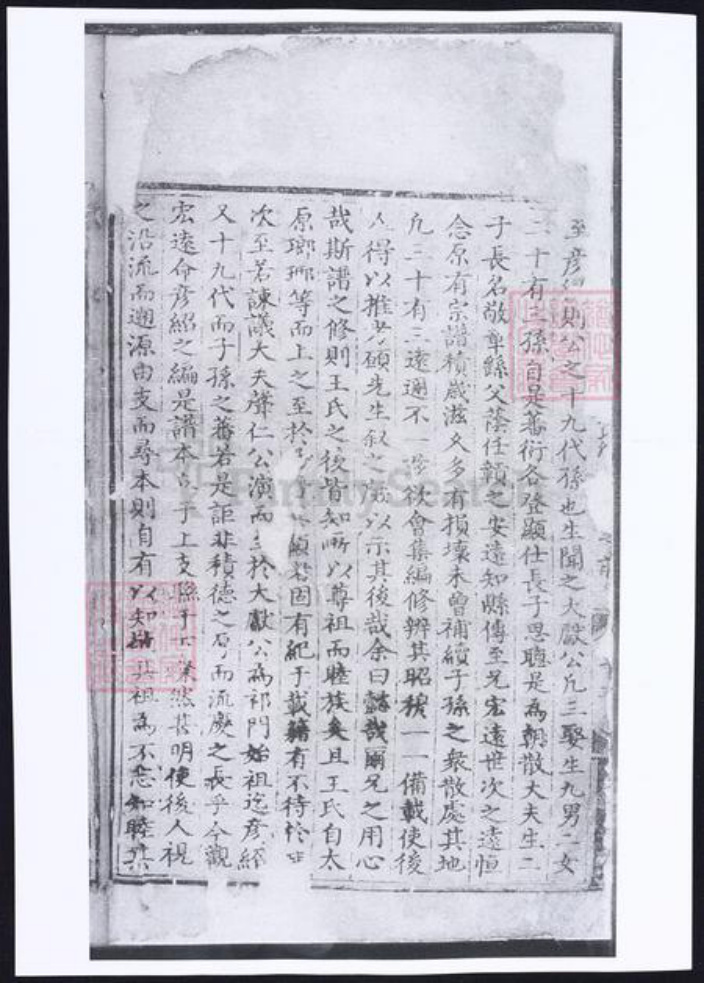 至彦 則公之十九代孫也生聞之大獻公凡三娶生九男二女
二十有三孫自是蕃衍各登顯仕長子思聰是為朝散大夫生二
子長名敞章繇父蔭任贛之安遠知縣傳至兄宏遠世次之遠恒
念原有宗譜積歲滋久多有損壞未曾補續子孫之衆散處其地
凡三十有三遠邇不一 欲會集編修辨其昭穆一一備載使後
人得以推考願先生叙之 以示其後哉余曰 哉爾兄之用心
哉斯譜之修則王氏之後皆知所以尊祖而睦族矣且王氏自太
原瑯琊等而上之至於 固有紀于載籍有不待於
次至若諫議大夫聲仁公演而 於大獻公為祁門始祖迄彦紹
又十九代而子孫之蕃若是詎非積德之厚而流慶之長乎今觀
宏遠命彦紹之編是譜本 于上支 于 然 明使後人視
之沿流而遡源由支而尋本則自有以知 其祖為不忘知睦其
FamilySearch